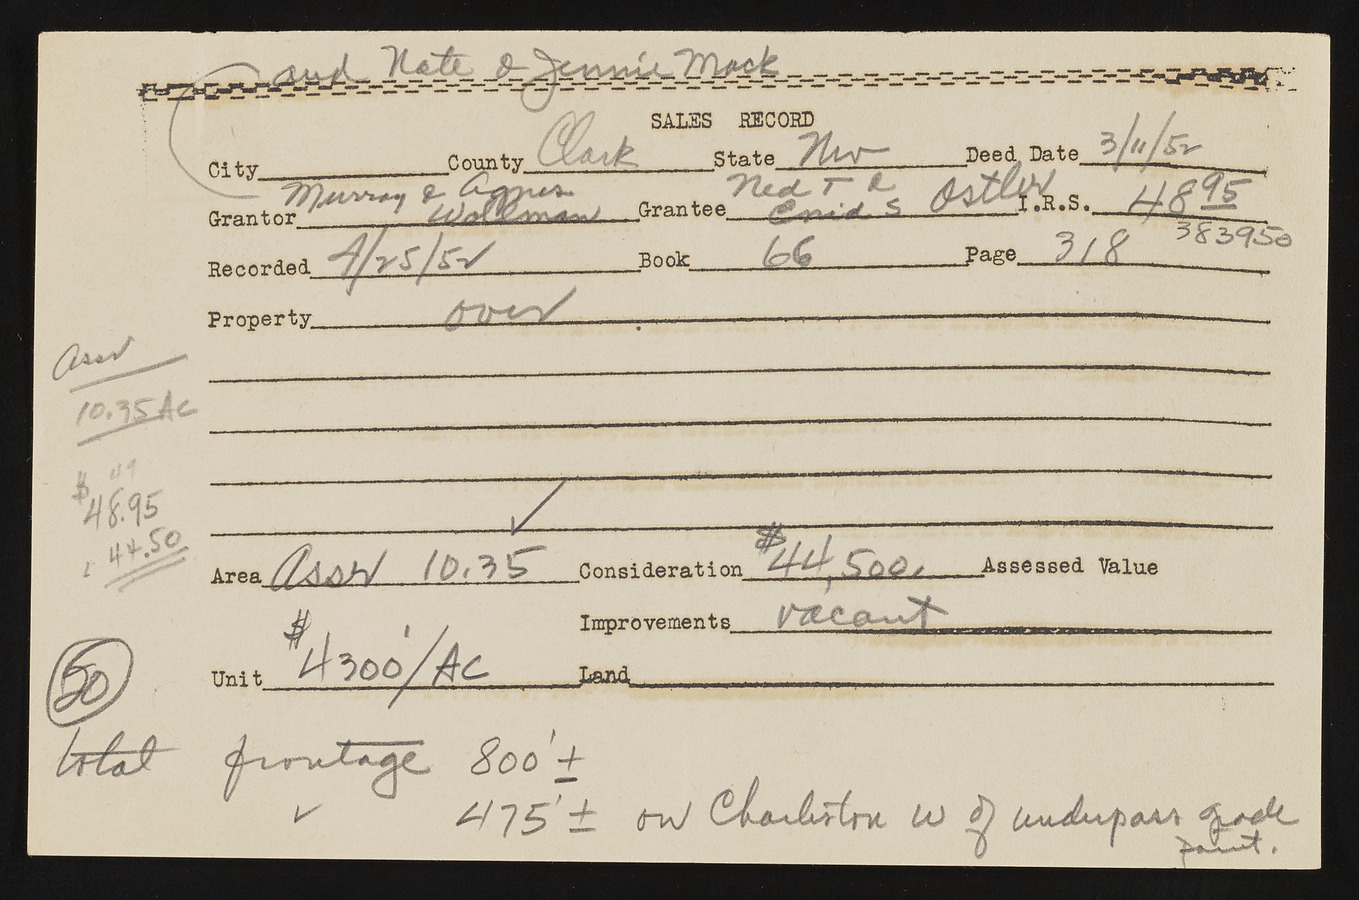 and Nate & Jennie Mack
SALES RECORD
City County Clark State Nev Deed Date 3/11/52
Murray & Agnes Ned T &
Grantor Wollman Grantee Enid S Ostler I.R.S. 48 95
383950
Recorded 4/25/52 Book 66 Page 318
Property over
Assr
10.35 Ac
49
$48.95
44.50
Area Assr 10.35 Consideration $44,500. Assessed Value
Improvements vacant
Unit $4300'/AC Land
50
total frontage 800' ±
✓ 475' ± on Charleston W of underpass grade
point.